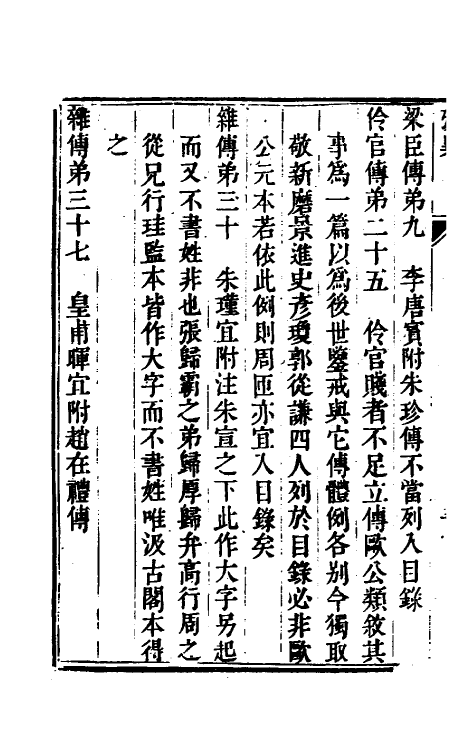 梁臣傳弟九　李唐賓附朱珍傳不當列入目錄
伶官傳弟二十五　伶官賤者不足立傳歐公類敘其
事爲一篇以爲後世鑒戒與它傳體例各别今獨取
敬新磨景進史彦瓊郭從謙四人列於目錄必非歐
公元本若依此例則周匝亦宜入目錄矣
雜傳弟三十　朱瑾宜附注朱宣之下此作大字另起
而又不書姓非也張歸霸之弟歸厚歸弁高行周之
從兄行珪監本皆作大字而不書姓唯汲古閣本得
之
雜傳弟三十七　皇甫暉宜附趙在禮傳